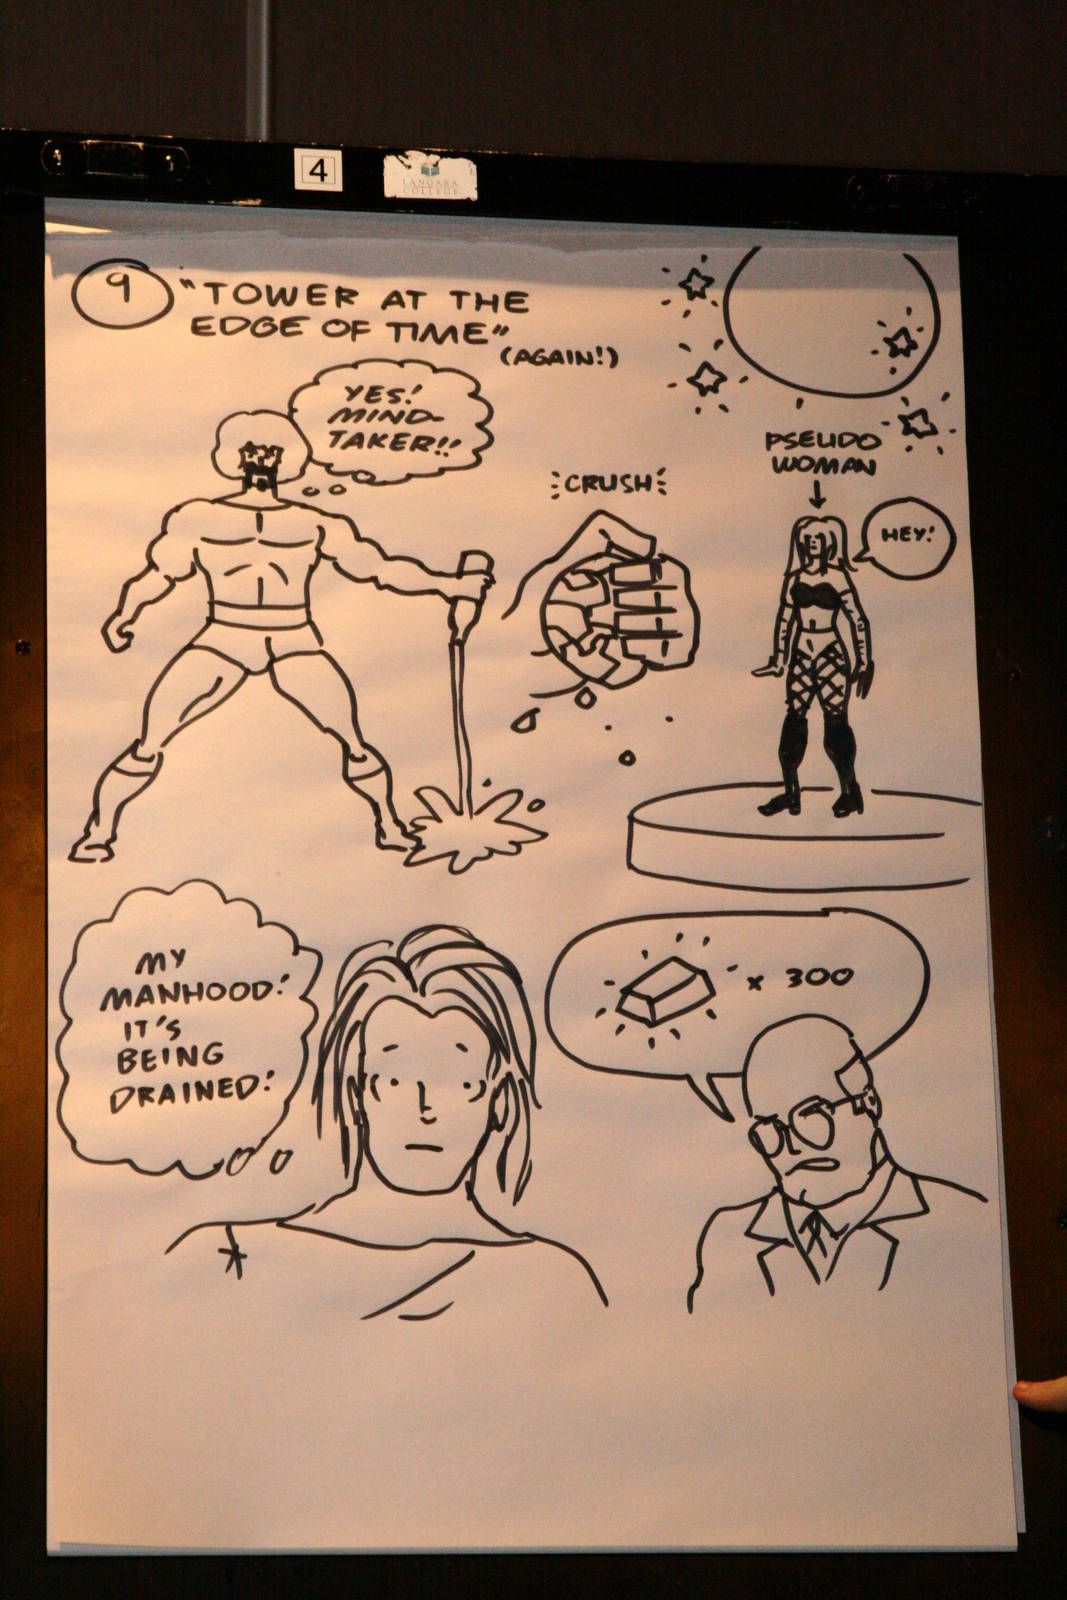 4
LANGARA
COLLEGE
9
"TOWER AT THE
EDGE OF TIME"
(AGAIN!)
YES!
MIND-
TAKER!!
CRUSH
PSEUDO
WOMAN
HEY!
MY
MANHOOD!
IT'S
BEING
DRAINED!
x 300